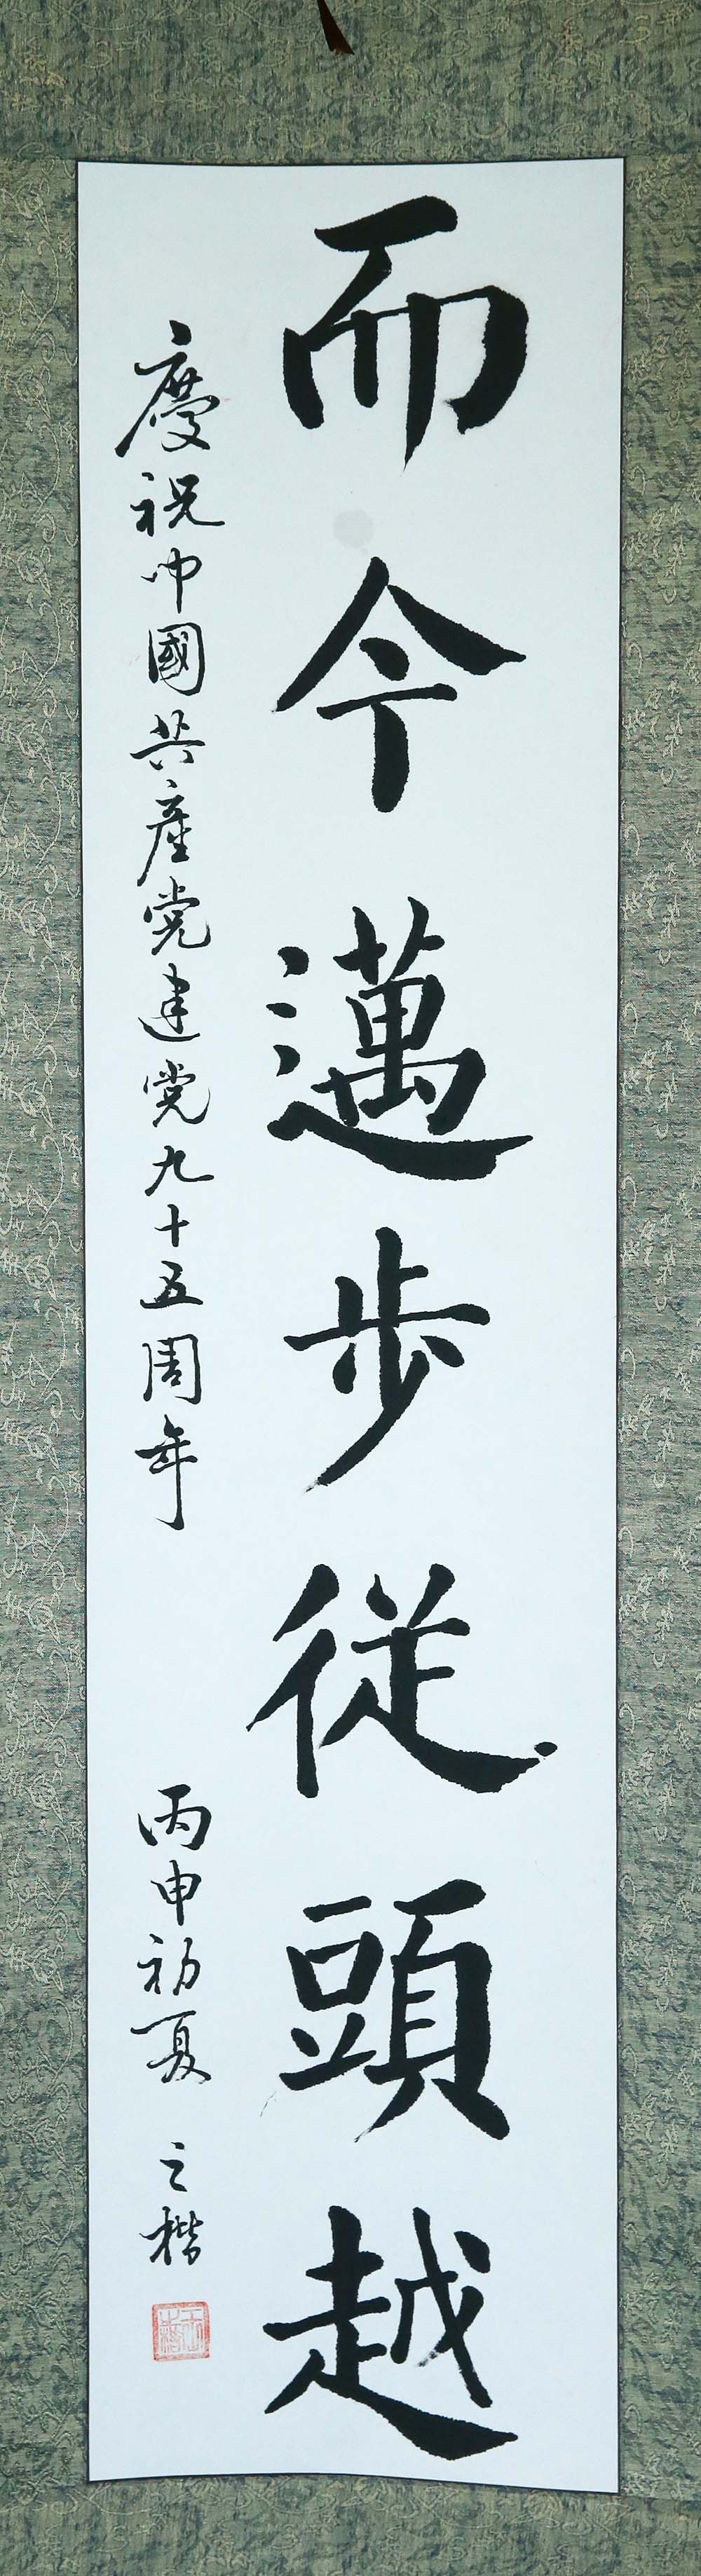 而今邁步從頭越
慶祝中國共產党建党九十五周年
丙申初夏 之楷